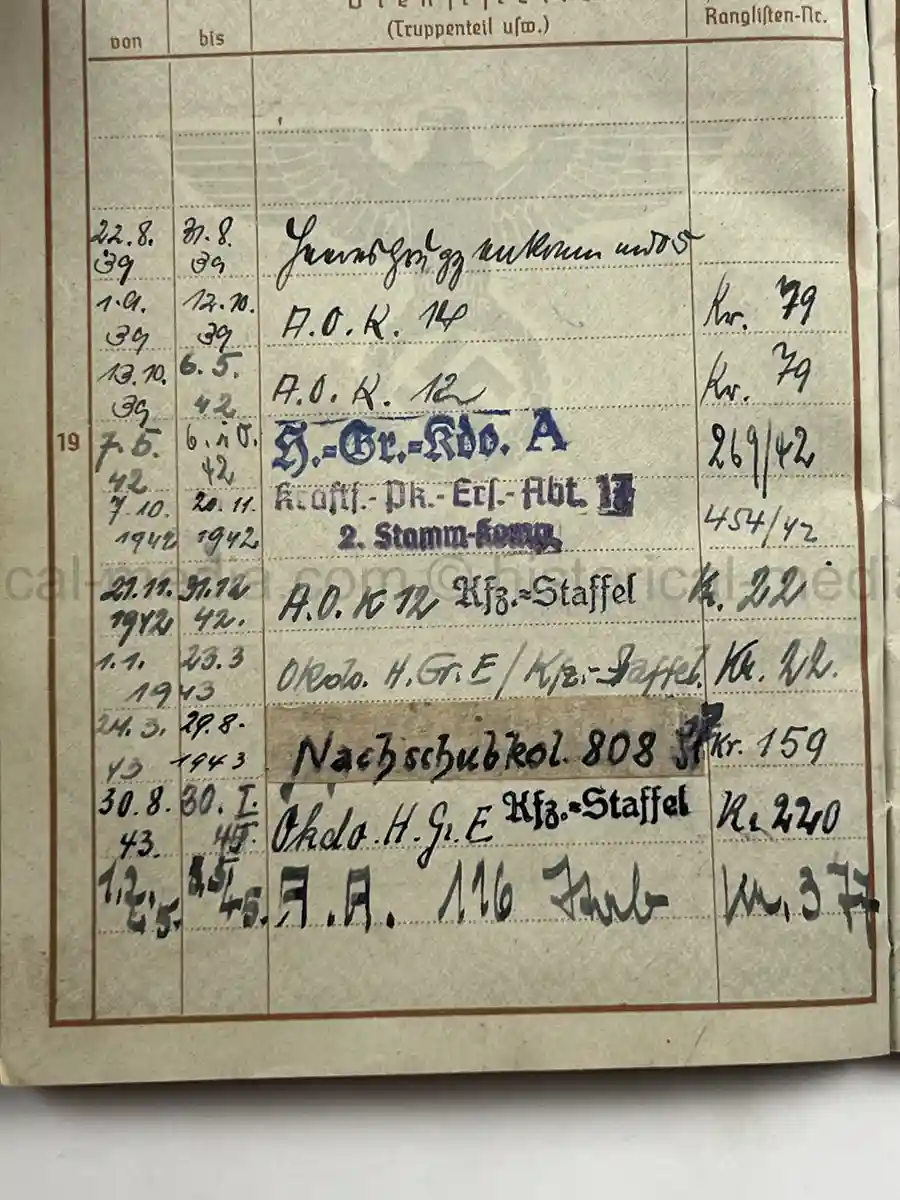 von bis (Truppenteil usw.) Ranglisten-Nr.
22.8. 39 31.8. 39
1.9. 39 12.10. 39 A.O.K. 14 Kr. 79
13.10. 39 6.5. 42 A.O.K. 12 Kr. 79
19
7.5. 42 6.10. 42 H.-Gr.-Kdo. A 269/42
7.10. 1942 20.11. 1942 Kraftf.-Pk.-Ers.-Abt. 17 454/42
2. Stamm-Komp.
21.11. 1942 31.12 42. A.O.K 12 Kfz.-Staffel K. 22
1.1. 23.3 1943 Okdo. H.Gr.E/Kfz.-Staffel. Kr. 22.
24.3. 43 29.8. 1943 Nachschubkol. 808 Kr. 159
30.8. 43. 30.I. 45. Okdo.H.Gr.E Kfz.-Staffel K. 220
1.2. 45. 45. A.A. 116 Stab Kr. 377
cal-media.com © historical-media